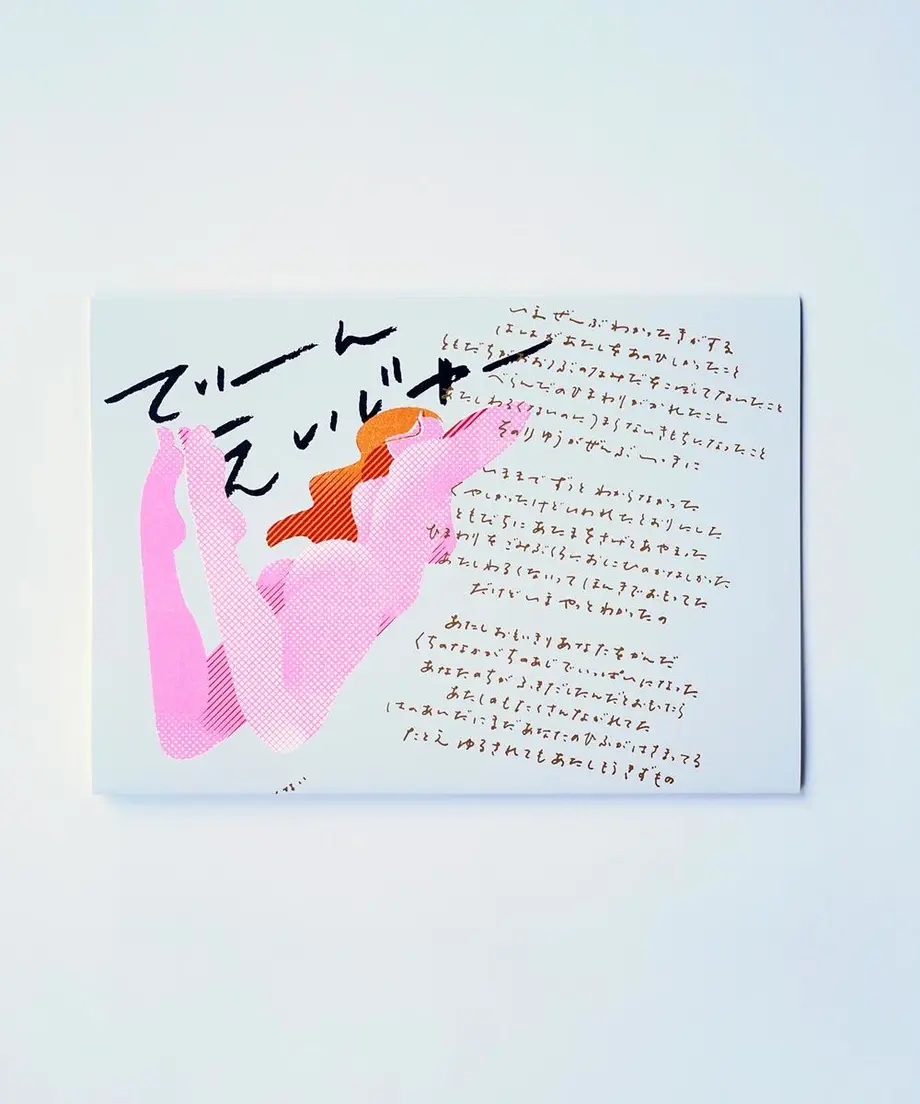 てぃーん
えいじゃー
いま ぜーんぶ わかった きがする
ははが あたしを あのひ しかったこと
ともだちが おおつぶの なみだを こぼして ないたこと
べらんだの ひまわりが かれたこと
あたし わるくないのに うまくない きもちに なったこと
その りゆうが ぜんぶ いっきに
いままで ずっと わからなかった
くやしかったけど いわれたとおりにした
ともだちに あたまを さげて あやまった
ひまわりを ごみぶくろに おしこむのが かなしかった
あたし わるくないって ほんきで おもってた
だけど いま やっと わかったの
あたし おもいきり あなたを かんだ
くちの なかが ちの あじで いっぱいに なった
あなたの ちが ふきだしたんだと おもったら
あたしのも たくさん ながれてた
はの あいだに まだ あなたの ひふが はさまってる
たとえ ゆるされても あたし もう きずもの